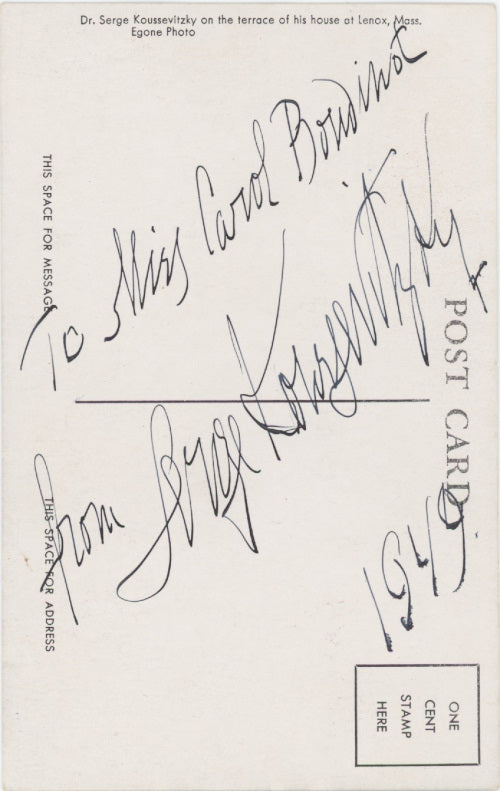 Dr. Serge Koussevitzky on the terrace of his house at Lenox, Mass.
Egone Photo
THIS SPACE FOR MESSAGE
To Miss Carol Boudinot
from Serge Koussevitzky
POST CARD
THIS SPACE FOR ADDRESS
ONE
CENT
STAMP
HERE